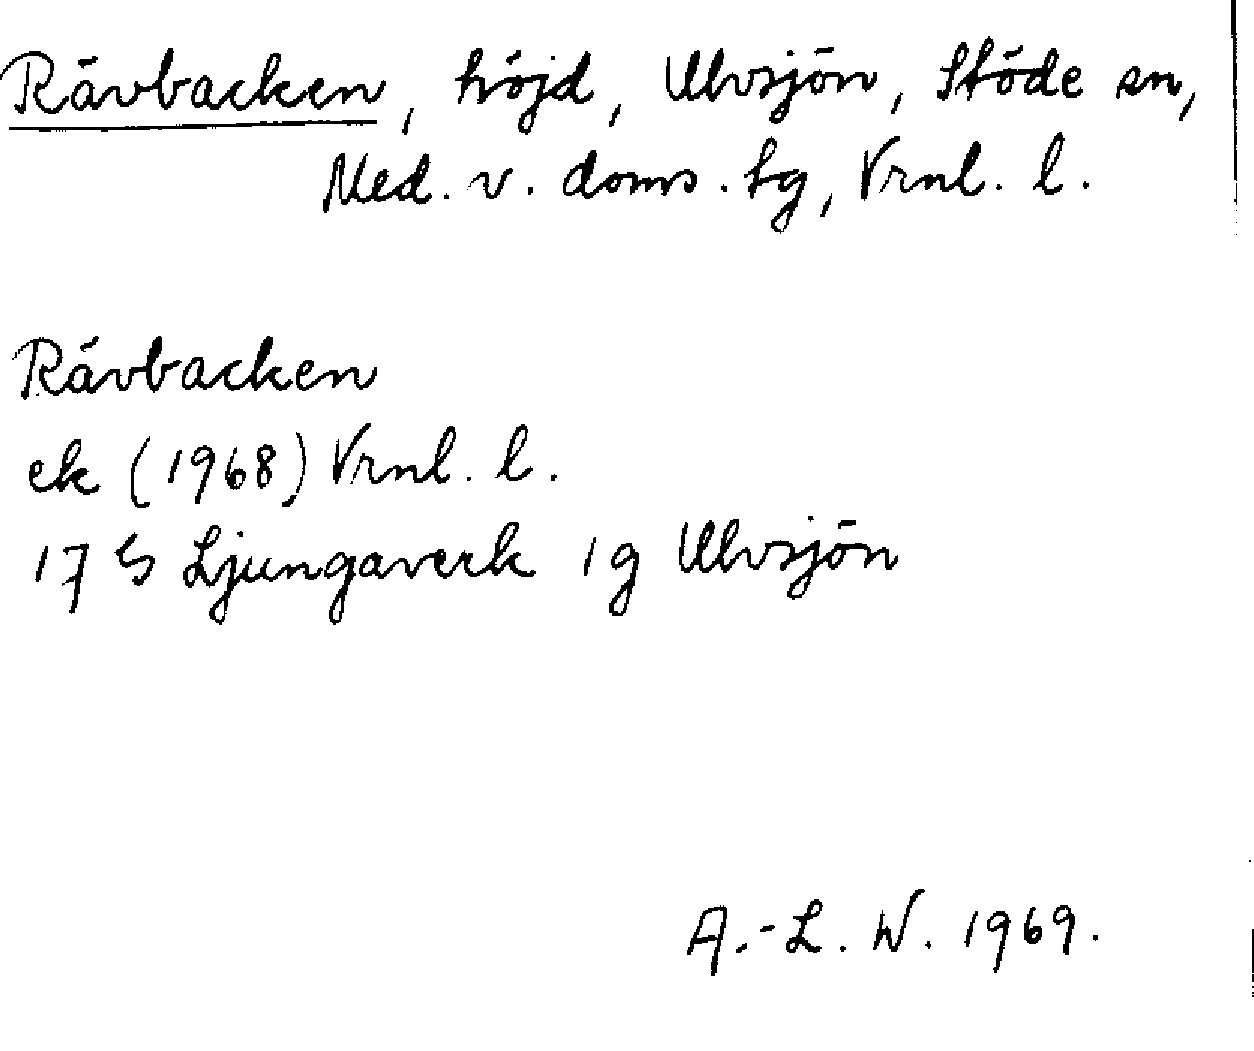 Rävbacken, höjd, Ulvsjön, Stöde sn,
Med. v. doms. tg, Vrnl. l.
Rävbacken
ek (1968) Vrnl. l.
17 G Ljungaverk 1g Ulvsjön
A.-L. W. 1969.